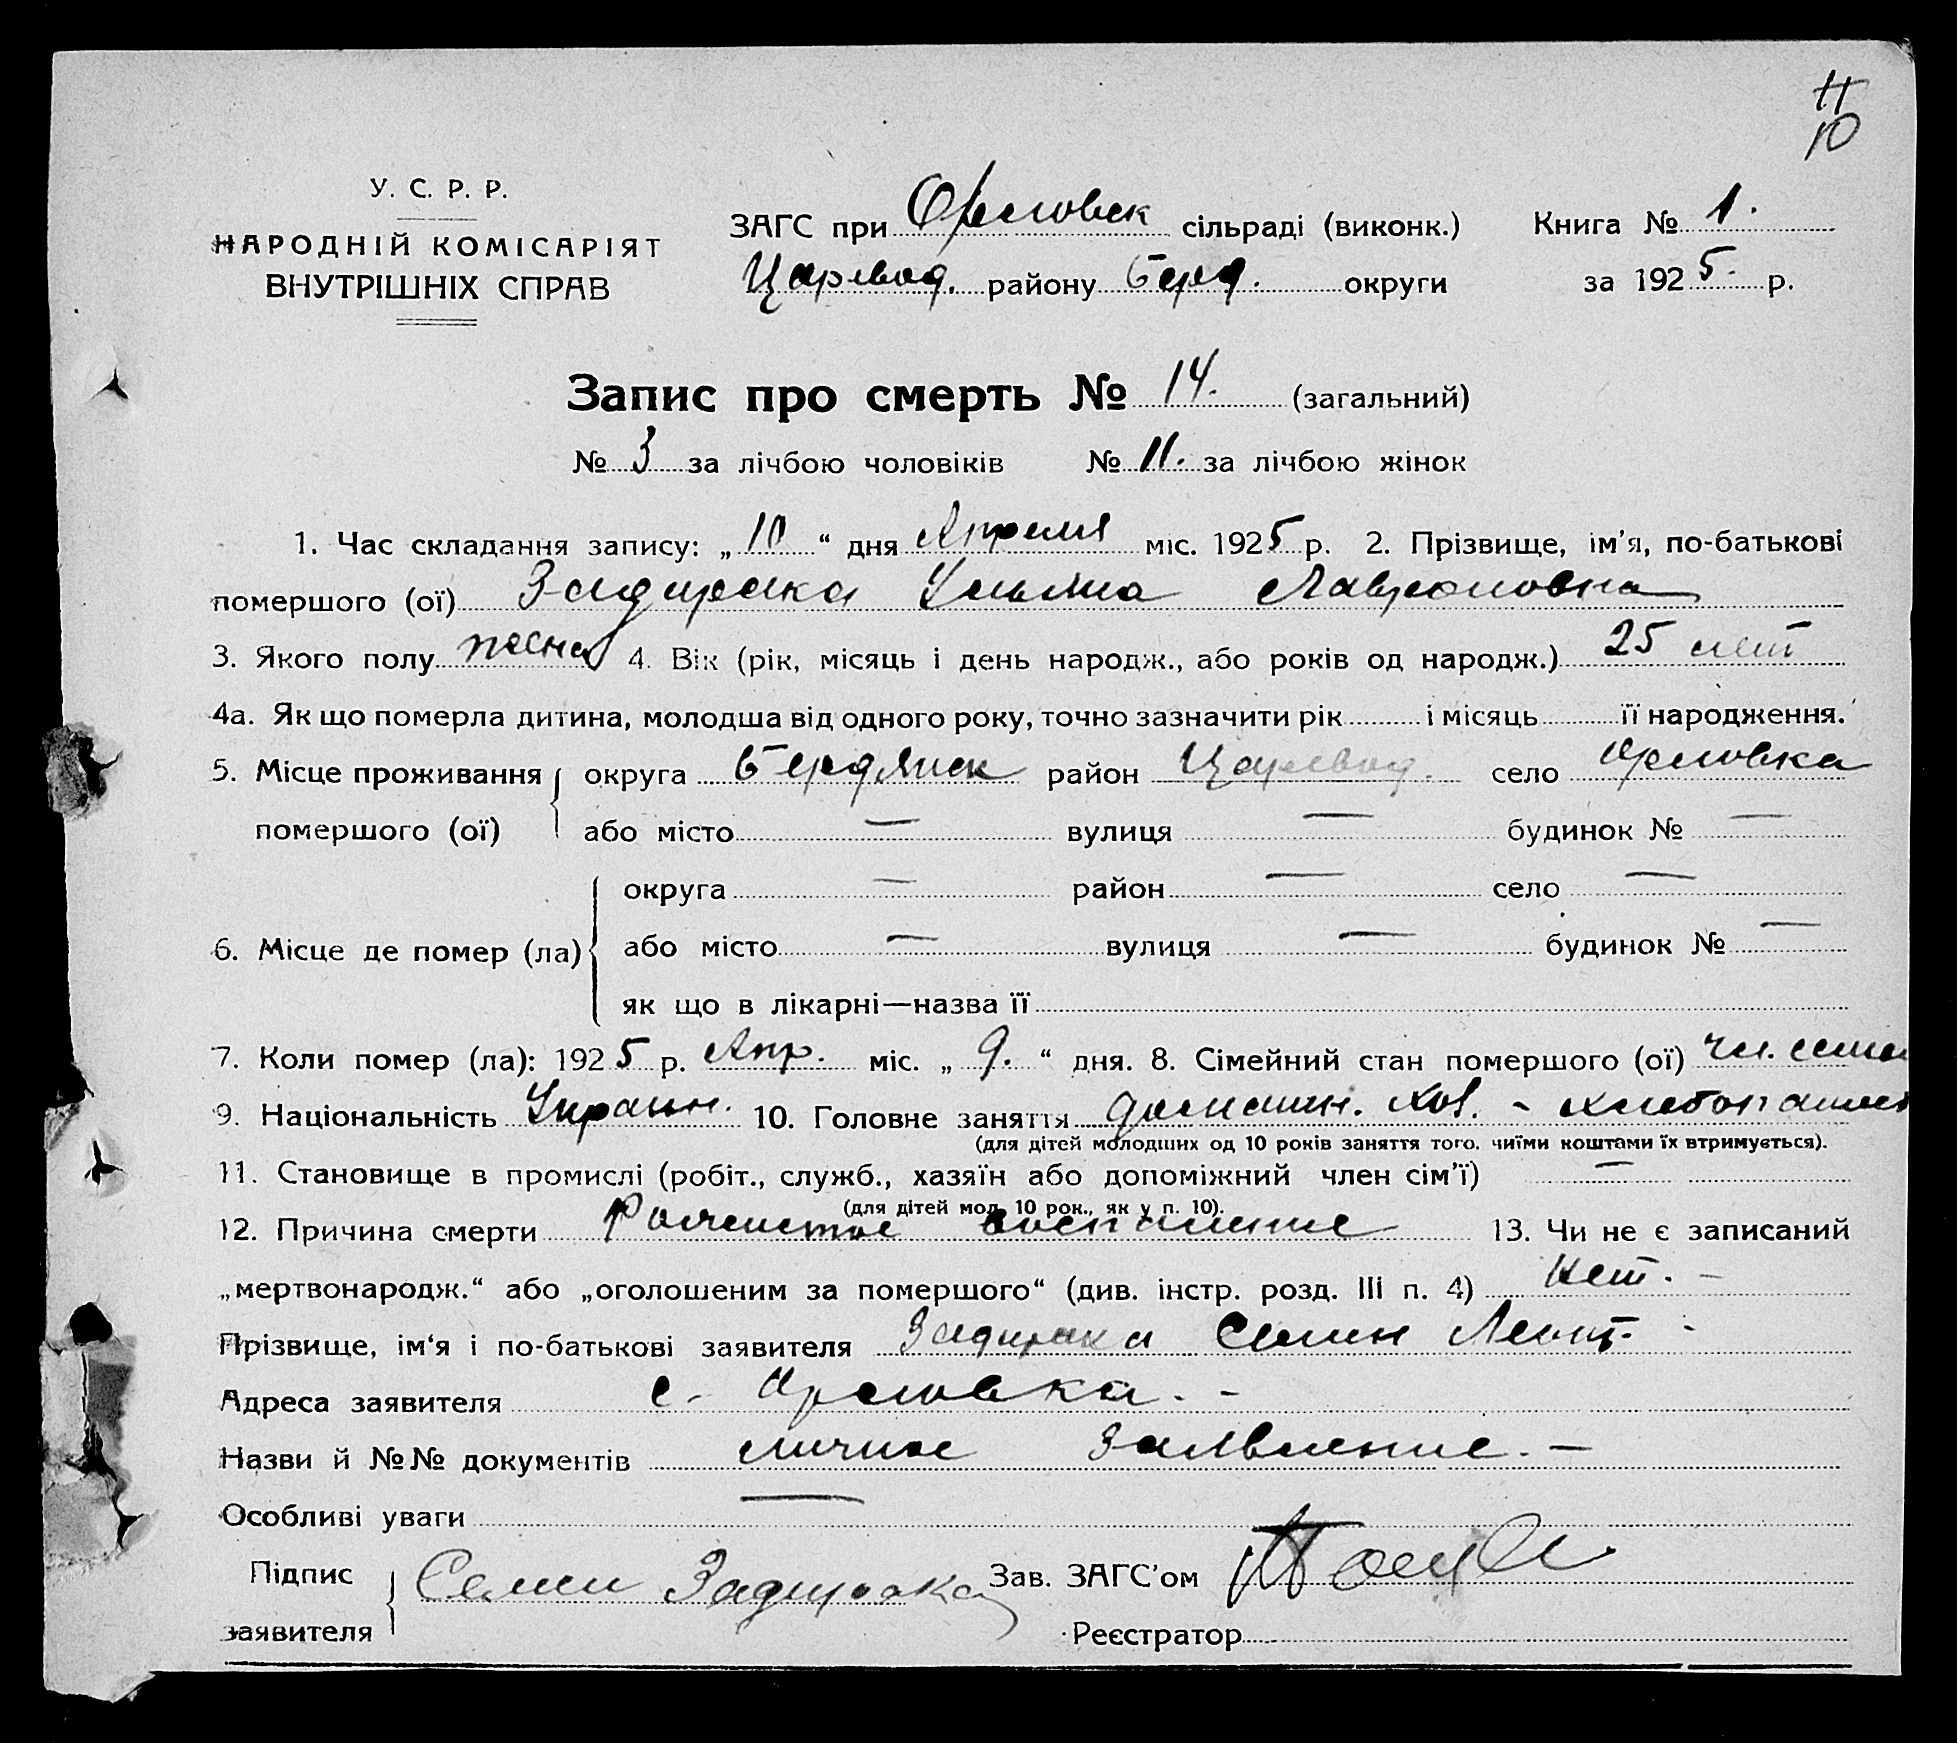 11
10
У. С. Р. Р.
НАРОДНІЙ КОМІСАРІЯТ
ВНУТРІШНІХ СПРАВ
ЗАГС при Орловск сільраді (виконк.) Книга № 1.
Царевод. району Берд. округи за 1925 р.
Запис про смерть № 14. (загальний)
№ 3 за лічбою чоловіків № 11. за лічбою жінок
1. Час складання запису: „10“ дня Апреля міс. 1925 р. 2. Прізвище, ім'я, по-батькові
помершого (ої) Задирака Ульяна
3. Якого полу 4. Вік (рік, місяць і день народж., або років од народж.) 25 лет
4а. Як що померла дитина, молодша від одного року, точно зазначити рік і місяць її народження.
5. Місце проживання округа Бердянск район Царевод. село Орловка
помершого (ої) або місто — вулиця — будинок № —
округа — район — село —
6. Місце де помер (ла) або місто — вулиця — будинок № —
як що в лікарні—назва її
7. Коли помер (ла): 1925 р. Апр. міс. „9.“ дня. 8. Сімейний стан помершого (ої) чл. семьи
9. Національність Украин. 10. Головне заняття домашн. хоз. - хлебопашест
(для дітей молодших од 10 років заняття того, чиїми коштами їх втримується).
11. Становище в промислі (робіт., служб., хазяїн або допоміжний член сім'ї) —
(для дітей мол. 10 рок., як у п. 10).
12. Причина смерти воспаление 13. Чи не є записаний
„мертвонародж.“ або „оголошеним за помершого“ (див. інстр. розд. III п. 4) Нет. -
Прізвище, ім'я і по-батькові заявителя Задирака Семен Леонт. -
Адреса заявителя с. Орловка. -
Назви й №№ документів личное заявление. —
Особливі уваги —
Підпис заявителя Семен Задирака Зав. ЗАГС'ом
Реєстратор